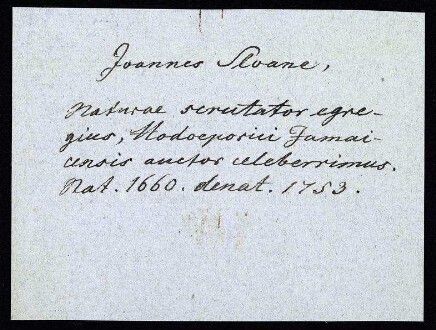 Joannes Sloane,
Naturae scrutator egre-
gius, Hodoeporici Jamai-
censis auctor celeberrimus.
Nat. 1660. denat. 1753.